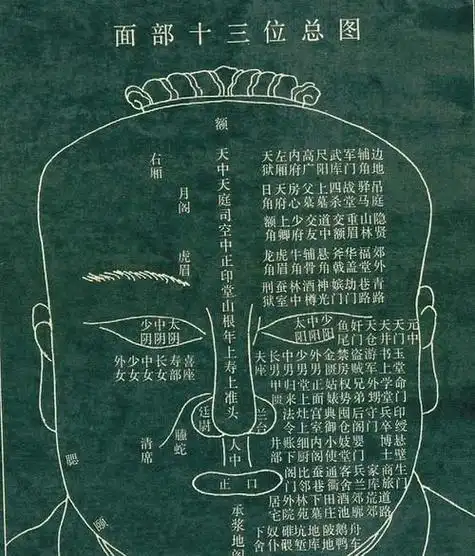 面部十三位总图
额
天中天庭司空中正印堂山根年上寿上准头
人中
正口
承浆地阁
右厢
月阁
虎眉
天狱 左厢 内府 高广 尺阳 武库 军门 辅角 边地
日角 天府 房心 父墓 上墓 四杀 战堂 驿马 吊庭
额角 上卿 少府 交友 道中 交额 重眉 山林 隐贤
龙角 虎眉 牛角 辅骨 悬角 斧戟 华盖 福堂 郊外
刑狱 蚕室 林中 酒樽 神光 嫔门 劫门 巷路 青路
少阴 中阴 太阴
太阳 中阳 少阳 鱼尾 奸门 天仓 天井 天门 元中
外女 少女 中女 长女 寿部 喜座
夫座 长男 中男 少男 外男 金匮 禁房 盗贼 游军 书上 玉堂
甲匮 归来 堂上 正面 姑姨 权势 兄弟 外甥 学堂 命门
廷尉 兰台
法令 灶上 宫室 典御 囤仓 后阁 守门 兵卒 印绶
螣蛇
清席
井部 帐下 细厨 内阁 小使 妓堂 婴门 博士 悬壁
阁门 比邻 通衢 客舍 兵兰 家库 商旅 生门
居宅 外院 林苑 下墓 酒池 郊郭 道路
下舍 奴仆 碓磑 坑堑 地库 陂池 鹅鸭 舟车